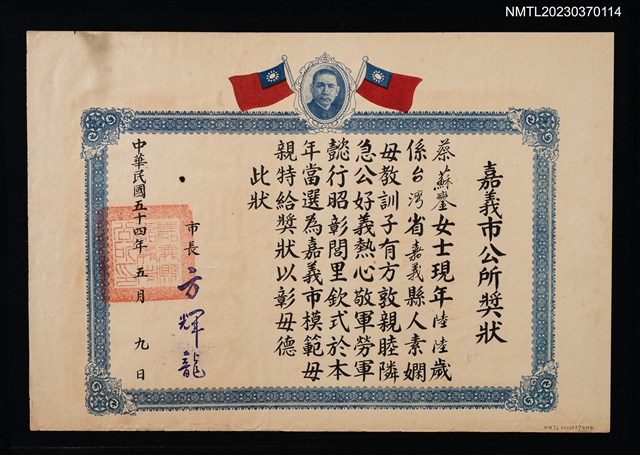 NMTL20230370114
嘉義市公所獎狀
蔡蘇鑾女士現年陸陸歲
係台灣省嘉義縣人素嫻
母教訓子有方敦親睦隣
急公好義熱心敬軍勞軍
懿行昭彰閭里欽式於本
年當選為嘉義市模範母
親特給獎狀以彰母德
此狀
市長 方輝龍
中華民國五十四年五月九日
NMTL20230370114